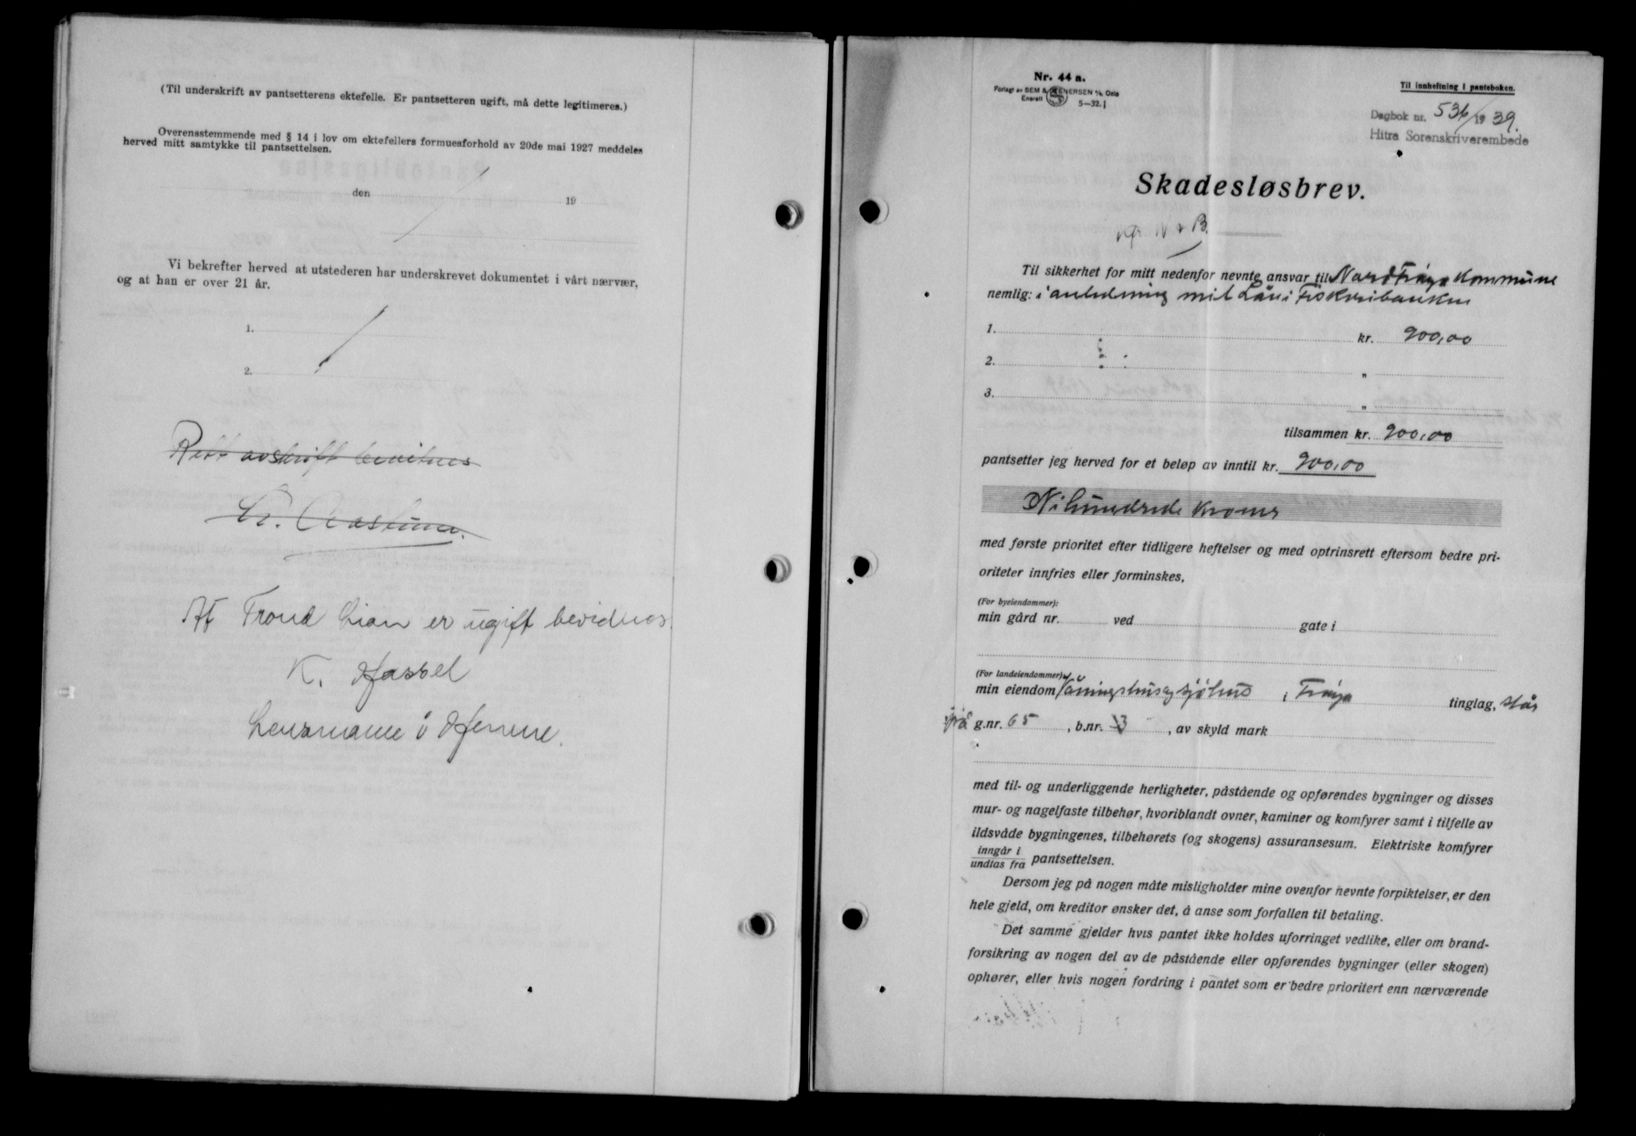 (Til underskrift av pantsetterens ektefelle. Er pantsetteren ugift, må dette legitimeres.)
Overensstemmende med § 14 i lov om ektefellers formuesforhold av 20de mai 1927 meddeles
herved mitt samtykke til pantsettelsen.
den 19
Vi bekrefter herved at utstederen har underskrevet dokumentet i vårt nærvær,
og at han er over 21 år.
1.
2.
Rett avskrift bevitnes
At Trond Lian er ugift bevidnes
K. Hassel
Lensmann i Hemne.
Nr. 44 a.
Forlag av SEM & STENERSEN A/S, Oslo
Enerett 5-32.
Til innheftning i panteboken.
Dagbok nr. 536/1939.
Hitra Sorenskriverembede
Skadesløsbrev.
Til sikkerhet for mitt nedenfor nevnte ansvar til Nord Frøya Kommune
nemlig: i anledning mit Lån i Fiskeribanken
1. kr. 900,00
2. "
3. "
tilsammen kr. 900,00
pantsetter jeg herved for et beløp av inntil kr. 900,00
Nihundrede Kroner
med første prioritet efter tidligere heftelser og med optrinsrett eftersom bedre pri-
oriteter innfries eller forminskes,
(For byeiendommer):
min gård nr. ved gate i
(For landeiendommer):
min eiendom Våningshus og sjøhus i Frøya tinglag, står
på g.nr. 65, b.nr. 3, av skyld mark
med til- og underliggende herligheter, påstående og opførendes bygninger og disses
mur- og nagelfaste tilbehør, hvoriblandt ovner, kaminer og komfyrer samt i tilfelle av
ildsvåde bygningenes, tilbehørets (og skogens) assuransesum. Elektriske komfyrer
inngår i
undtas fra pantsettelsen.
Dersom jeg på nogen måte misligholder mine ovenfor nevnte forpliktelser, er den
hele gjeld, om kreditor ønsker det, å anse som forfallen til betaling.
Det samme gjelder hvis pantet ikke holdes uforringet vedlike, eller om brand-
forsikring av nogen del av de påstående eller opførendes bygninger (eller skogen)
ophører, eller hvis nogen fordring i pantet som er bedre prioritert enn nærværende